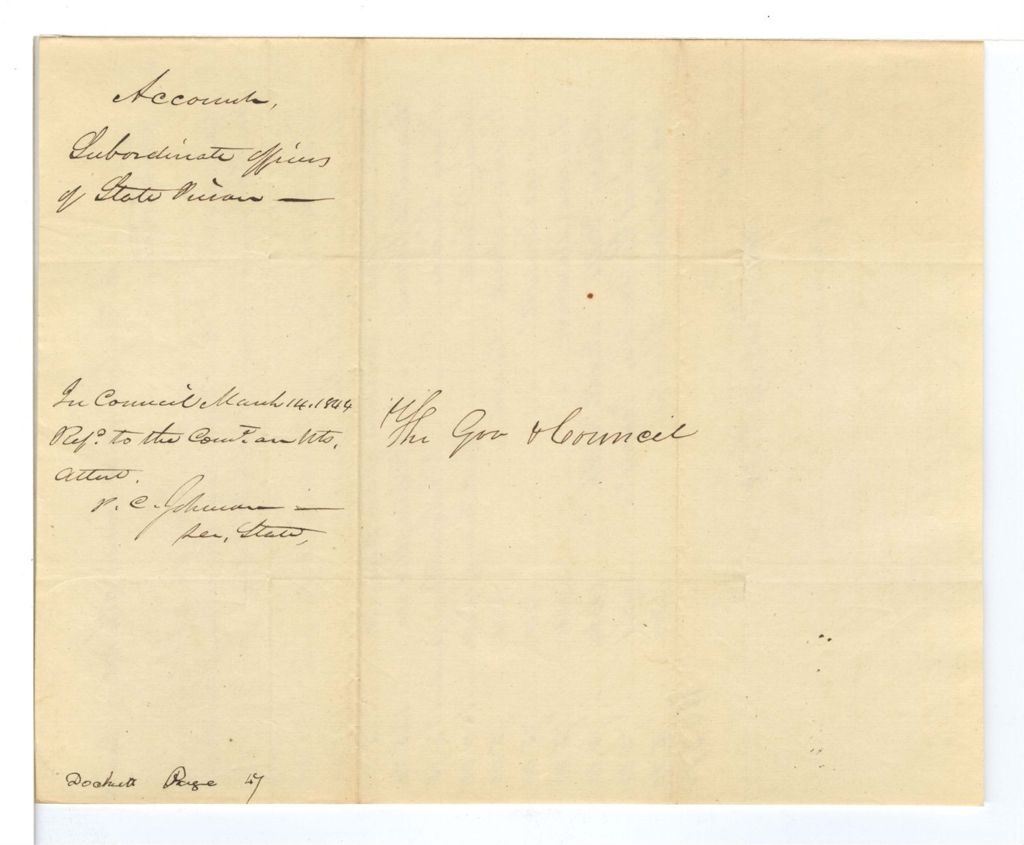 Accounts,
Subordinate officers
of State Prison —
In Council March 14, 1844
Refd. to the Comtee. on Accts.
Attest.
P. C. Johnson —
Sec. State,
The Gov & Council
Dockett Page 47